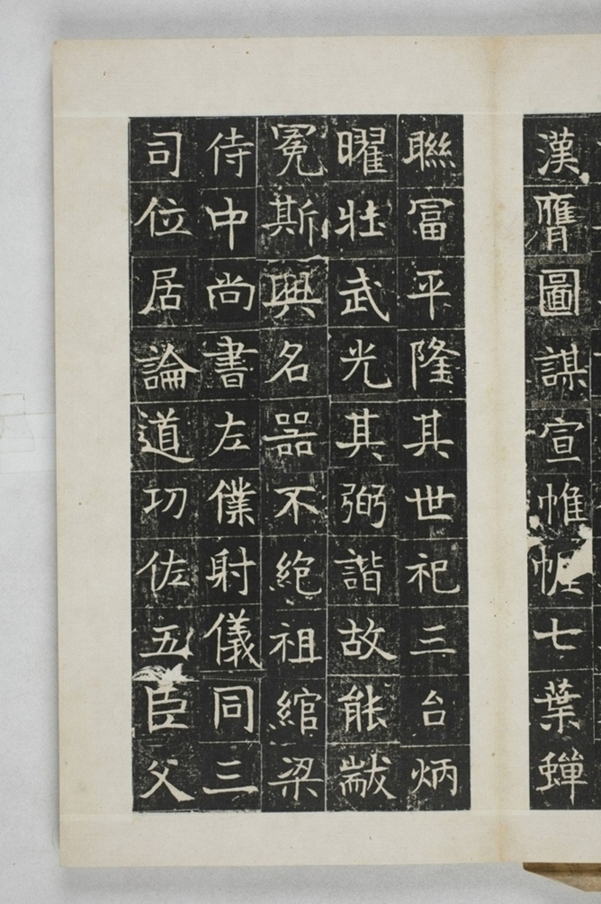 漢膺圖謀宣帷幄七葉蟬
聮富平隆其世祀三台炳
曜壯武光其弼諧故能黻
冕斯興名器不絕祖綰梁
侍中尚書左僕射儀同三
司位居論道功佐五臣父